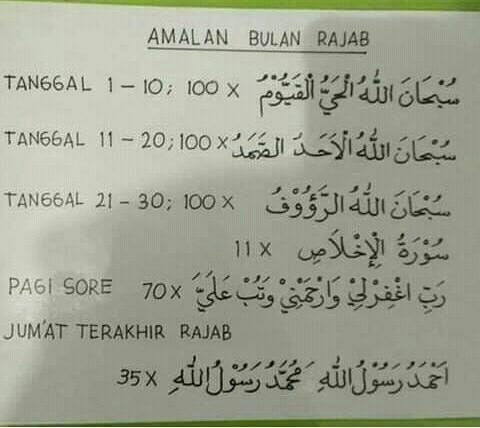 AMALAN BULAN RAJAB
TANGGAL 1 - 10; 100 X سُبْحَانَ اللّٰهِ الْحَيُّ الْقَيُّوْمُ
TANGGAL 11 - 20; 100 X سُبْحَانَ اللّٰهِ الْاَحَدَ الصَّمَدُ
TANGGAL 21 - 30; 100 X سُبْحَانَ اللّٰهِ الرَّؤُوْفُ
11 X سُوْرَةُ الْاِخْلَاصِ
PAGI SORE 70 X رَبِّ اغْفِرْلِيْ وَارْحَمْنِيْ وَتُبْ عَلَيَّ
JUM'AT TERAKHIR RAJAB
35 X اَحْمَدُ رَسُوْلُ اللّٰهِ مُحَمَّدُ رَسُوْلُ اللّٰهِ